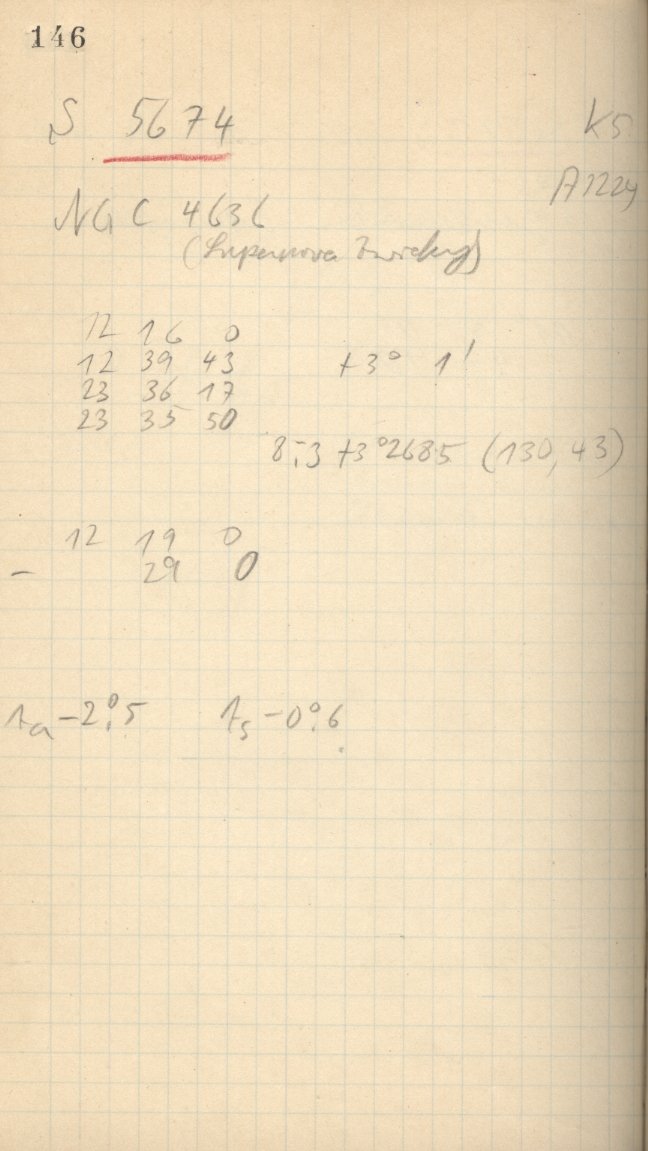 146
S 5674
K5
A1224
NGC 4636
(Supernova Zwicky)
12 16 0
12 39 43 +3° 1'
23 36 17
23 35 50
8.3 +3°2685 (130,43)
12 19 0
- 29 0
-2°.5 -0°.6